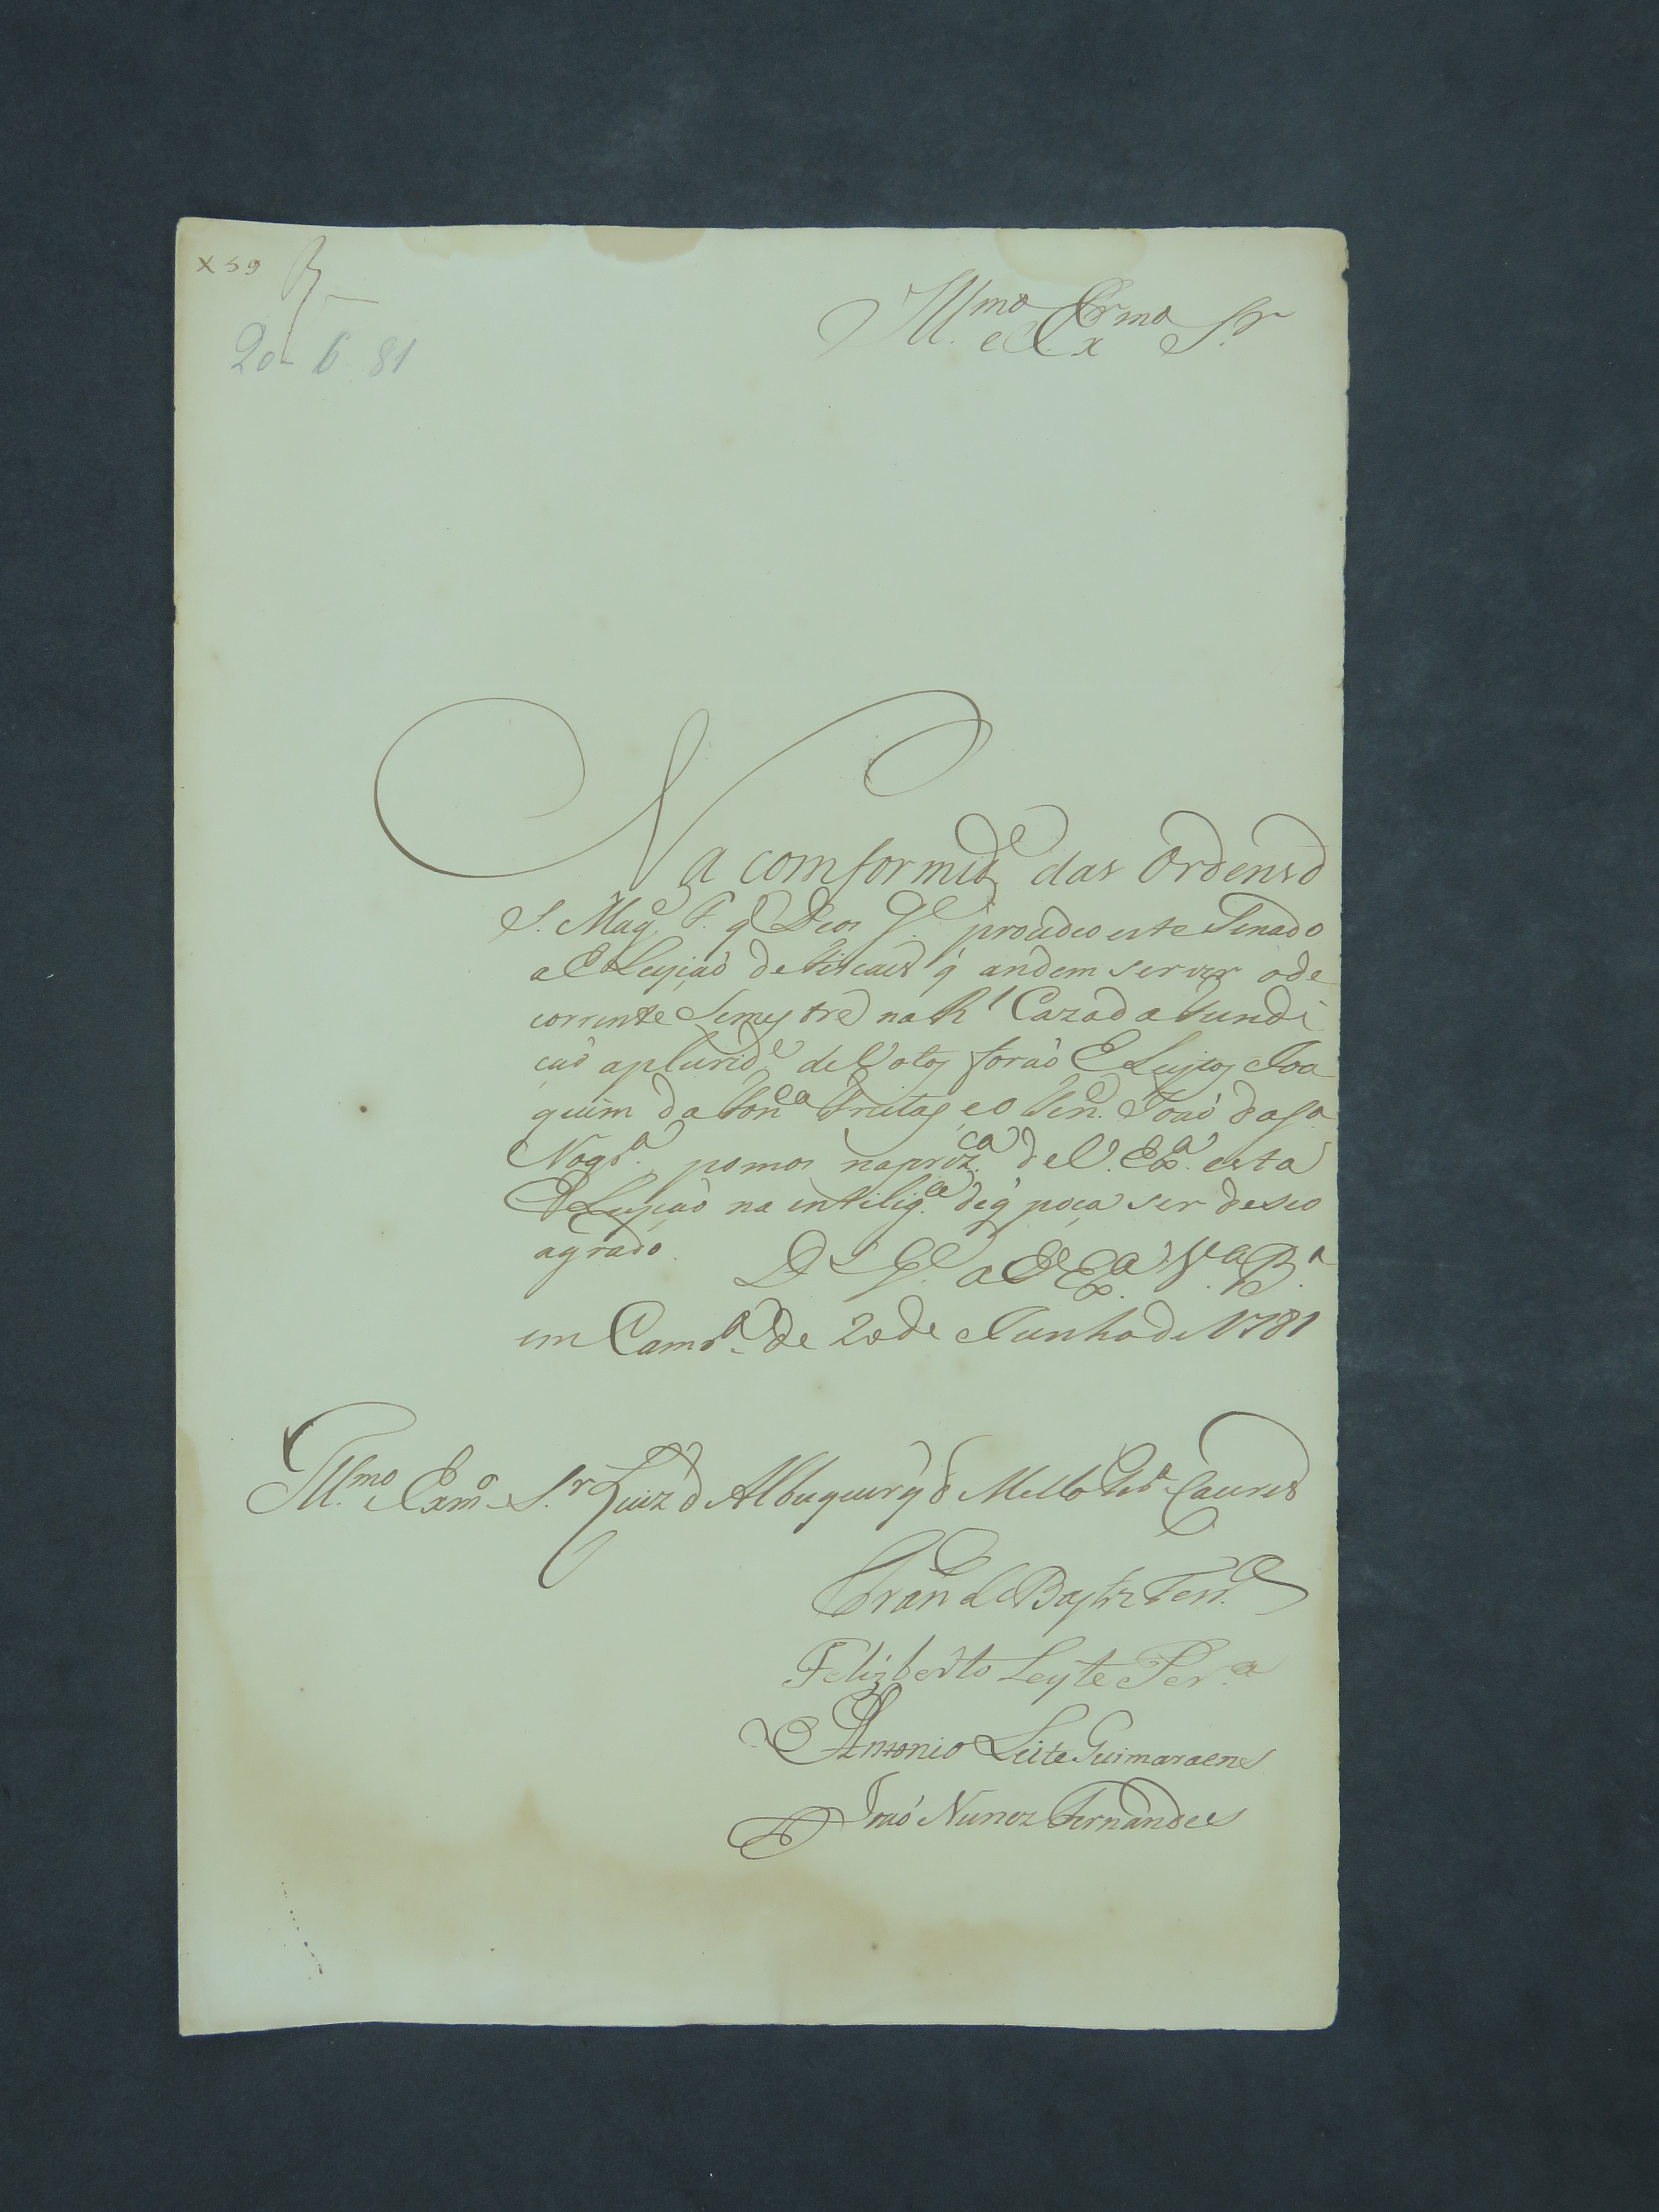 X 59 R
Ill.mo e Ex.mo S.r
20- 6- 81
Na comformid.e das Ordens d
S. Mag.e F. q Deos G.e proudeo este Senado
a ELeyçaõ de Fiscais q̃ andem servir ode
corrente Semestre na R.l Caza da Fundi
çaõ aplurid.e de Votos foraõ ELeytos Joa
quim da Fon.ca Freitas, e o Ten. Joaõ da S.a
Nogr.a, pomos napriz.ca de V. Ex.a esta
ELeyçaõ na intilig.ca deq̃ poça ser deseo
agrado. D.s G.e a V. Ex.a V.a B.a
em Camr.a de 20 de Junho de 1781
Ill.mo e Exm.o S.r Luiz d Albuquerq̃ d Mello Per.a Caceres
Fran Bapt Ferr.
Felizberto Leyte Per.a
Antonio Leite Guimaraens
Joaõ Nunez Fernandes